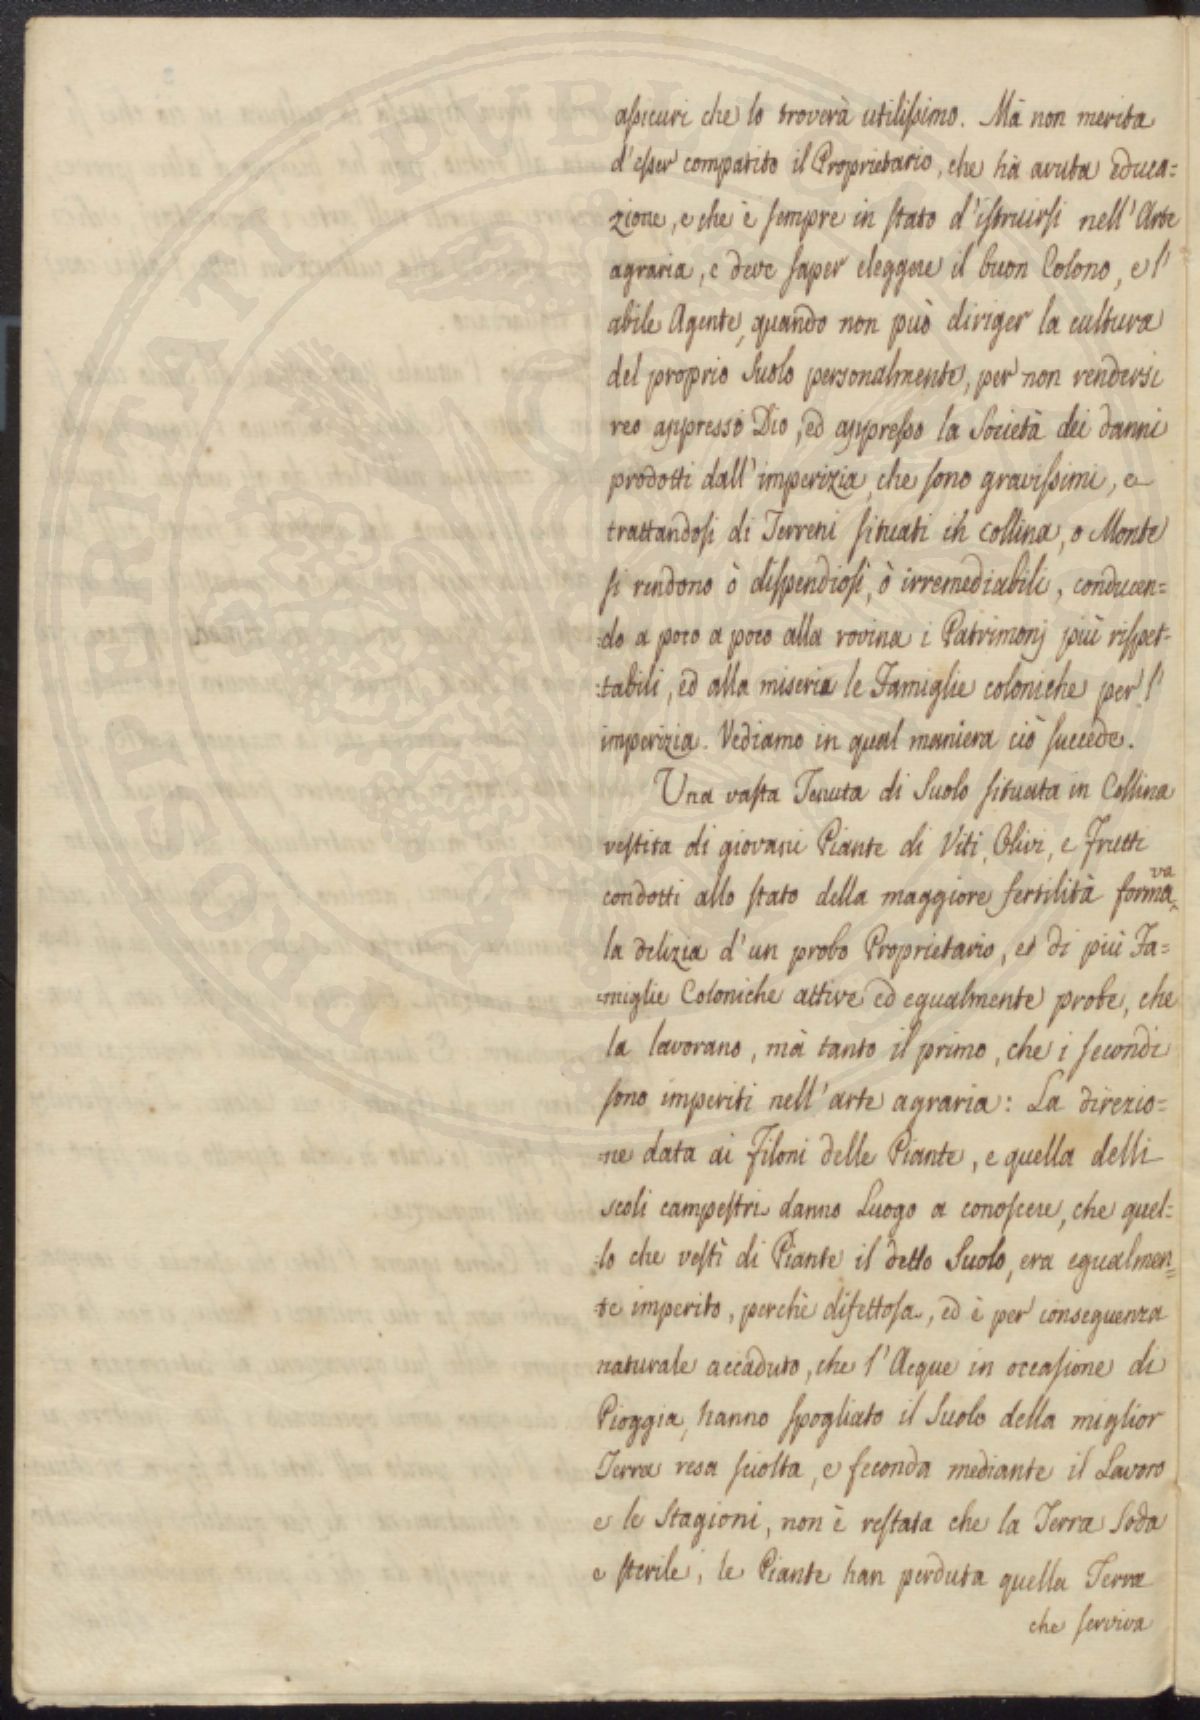 assicuri che lo troverà utilissimo. Mà non merita
d'esser compatito il Proprietario, che hà avuta educa=
zione, e che è sempre in stato d'istruirsi nell'Arte
agraria, e deve saper eleggere il buon Colono, e l'
abile Agente, quando non può diriger la cultura
del proprio Suolo personalmente, per non rendersi
reo appresso Dio, ed appresso la Società dei danni
prodotti dall'imperizia, che sono gravissimi, e
trattandosi di Terreni situati in Collina, o Monte
si rendono ò dispendiosi, ò irremediabili, conducen=
=do a poco a poco alla rovina i Patrimonj più rispet=
=tabili, ed alla miseria le Famiglie coloniche per l'
imperizia. Vediamo in qual maniera ciò succede.
Una vasta Tenuta di Suolo situata in Collina
vestita di giovani Piante di Viti, Olivi, e Frutti
condotti allo stato della maggiore fertilità formava
la delizia d'un probo Proprietario, et di più Fa=
=miglie Coloniche attive ed egualmente probe, che
la lavorano, mà tanto il primo, che i secondi
sono imperiti nell'arte agraria: La direzio=
=ne data ai Filoni delle Piante, e quella delli
scoli campestri danno Luogo a conoscere, che quel=
=lo che vestì di Piante il detto Suolo, era egualmen=
te imperito, perchè difettosa, ed è per conseguenza
naturale accaduto, che l'Acque in occasione di
Pioggia, hanno spogliato il Suolo della miglior
Terra resa sciolta, e feconda mediante il Lavoro
e le Stagioni, non è restata che la Terra Soda
e sterile, le Piante han perduta quella Terra
che serviva
PUBLICA